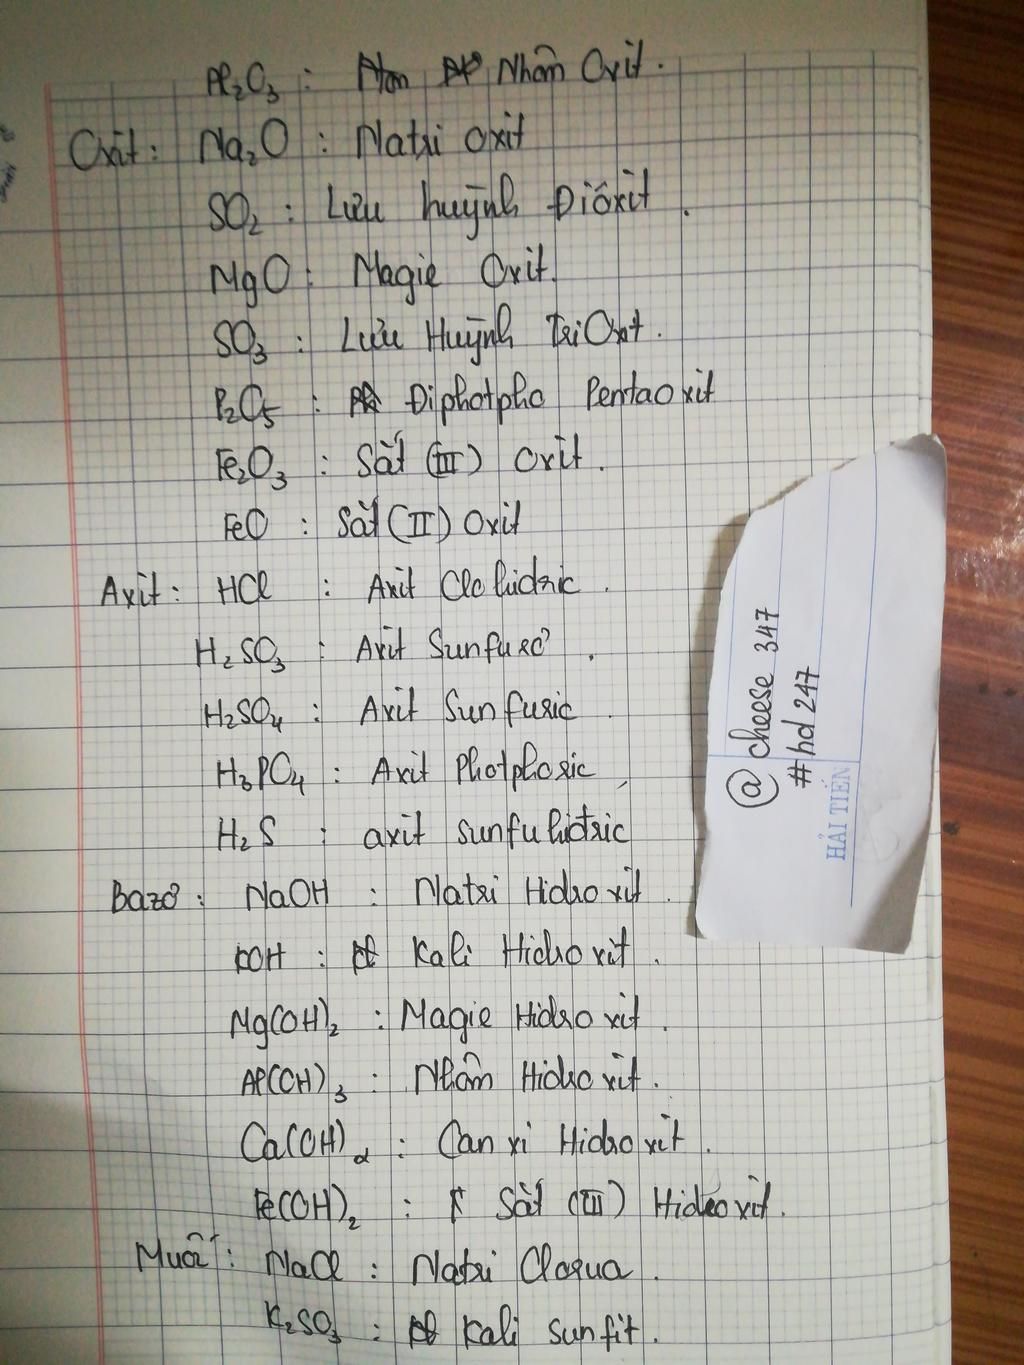 Al₂O₃ : Nhôm Oxit.
Oxit : Na₂O : Natri Oxit
SO₂ : Lưu huỳnh Đioxit.
MgO : Magie Oxit.
SO₃ : Lưu Huỳnh TriOxit.
P₂O₅ : Điphotpho Pentaoxit
Fe₂O₃ : Sắt (III) Oxit.
FeO : Sắt (II) Oxit
Axit : HCl : Axit Clohidric.
H₂SO₃ : Axit Sunfurơ.
H₂SO₄ : Axit Sunfuric
H₃PO₄ : Axit Photphoric
H₂S : axit sunfuhidric
Bazơ : NaOH : Natri Hidroxit.
KOH : Kali Hidroxit.
Mg(OH)₂ : Magie Hidroxit.
Al(OH)₃ : Nhôm Hidroxit.
Ca(OH)₂ : Canxi Hidroxit.
Fe(OH)₂ : Sắt (II) Hidroxit.
Muối : NaCl : Natri Clorua.
K₂SO₃ : Kali sunfit.
@cheese 347
#hd247
HẢI TIẾN